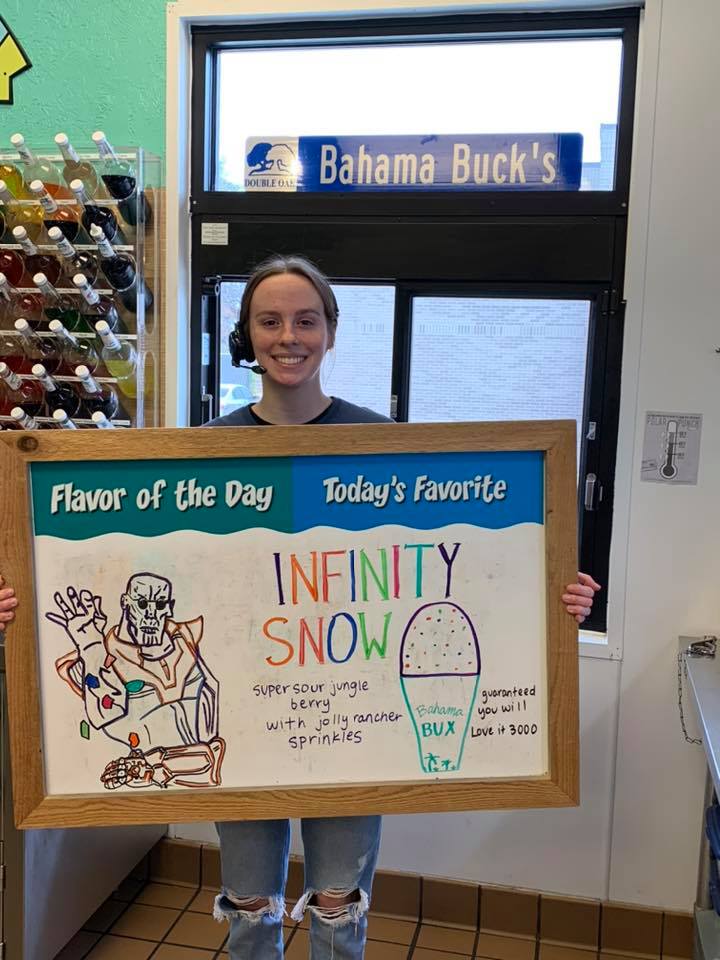 DOUBLE OAK
Bahama Buck's
Flavor of the Day
Today's Favorite
INFINITY
SNOW
super sour jungle
berry
with jolly rancher
sprinkles
Bahama
BUX
guaranteed
you will
Love it 3000